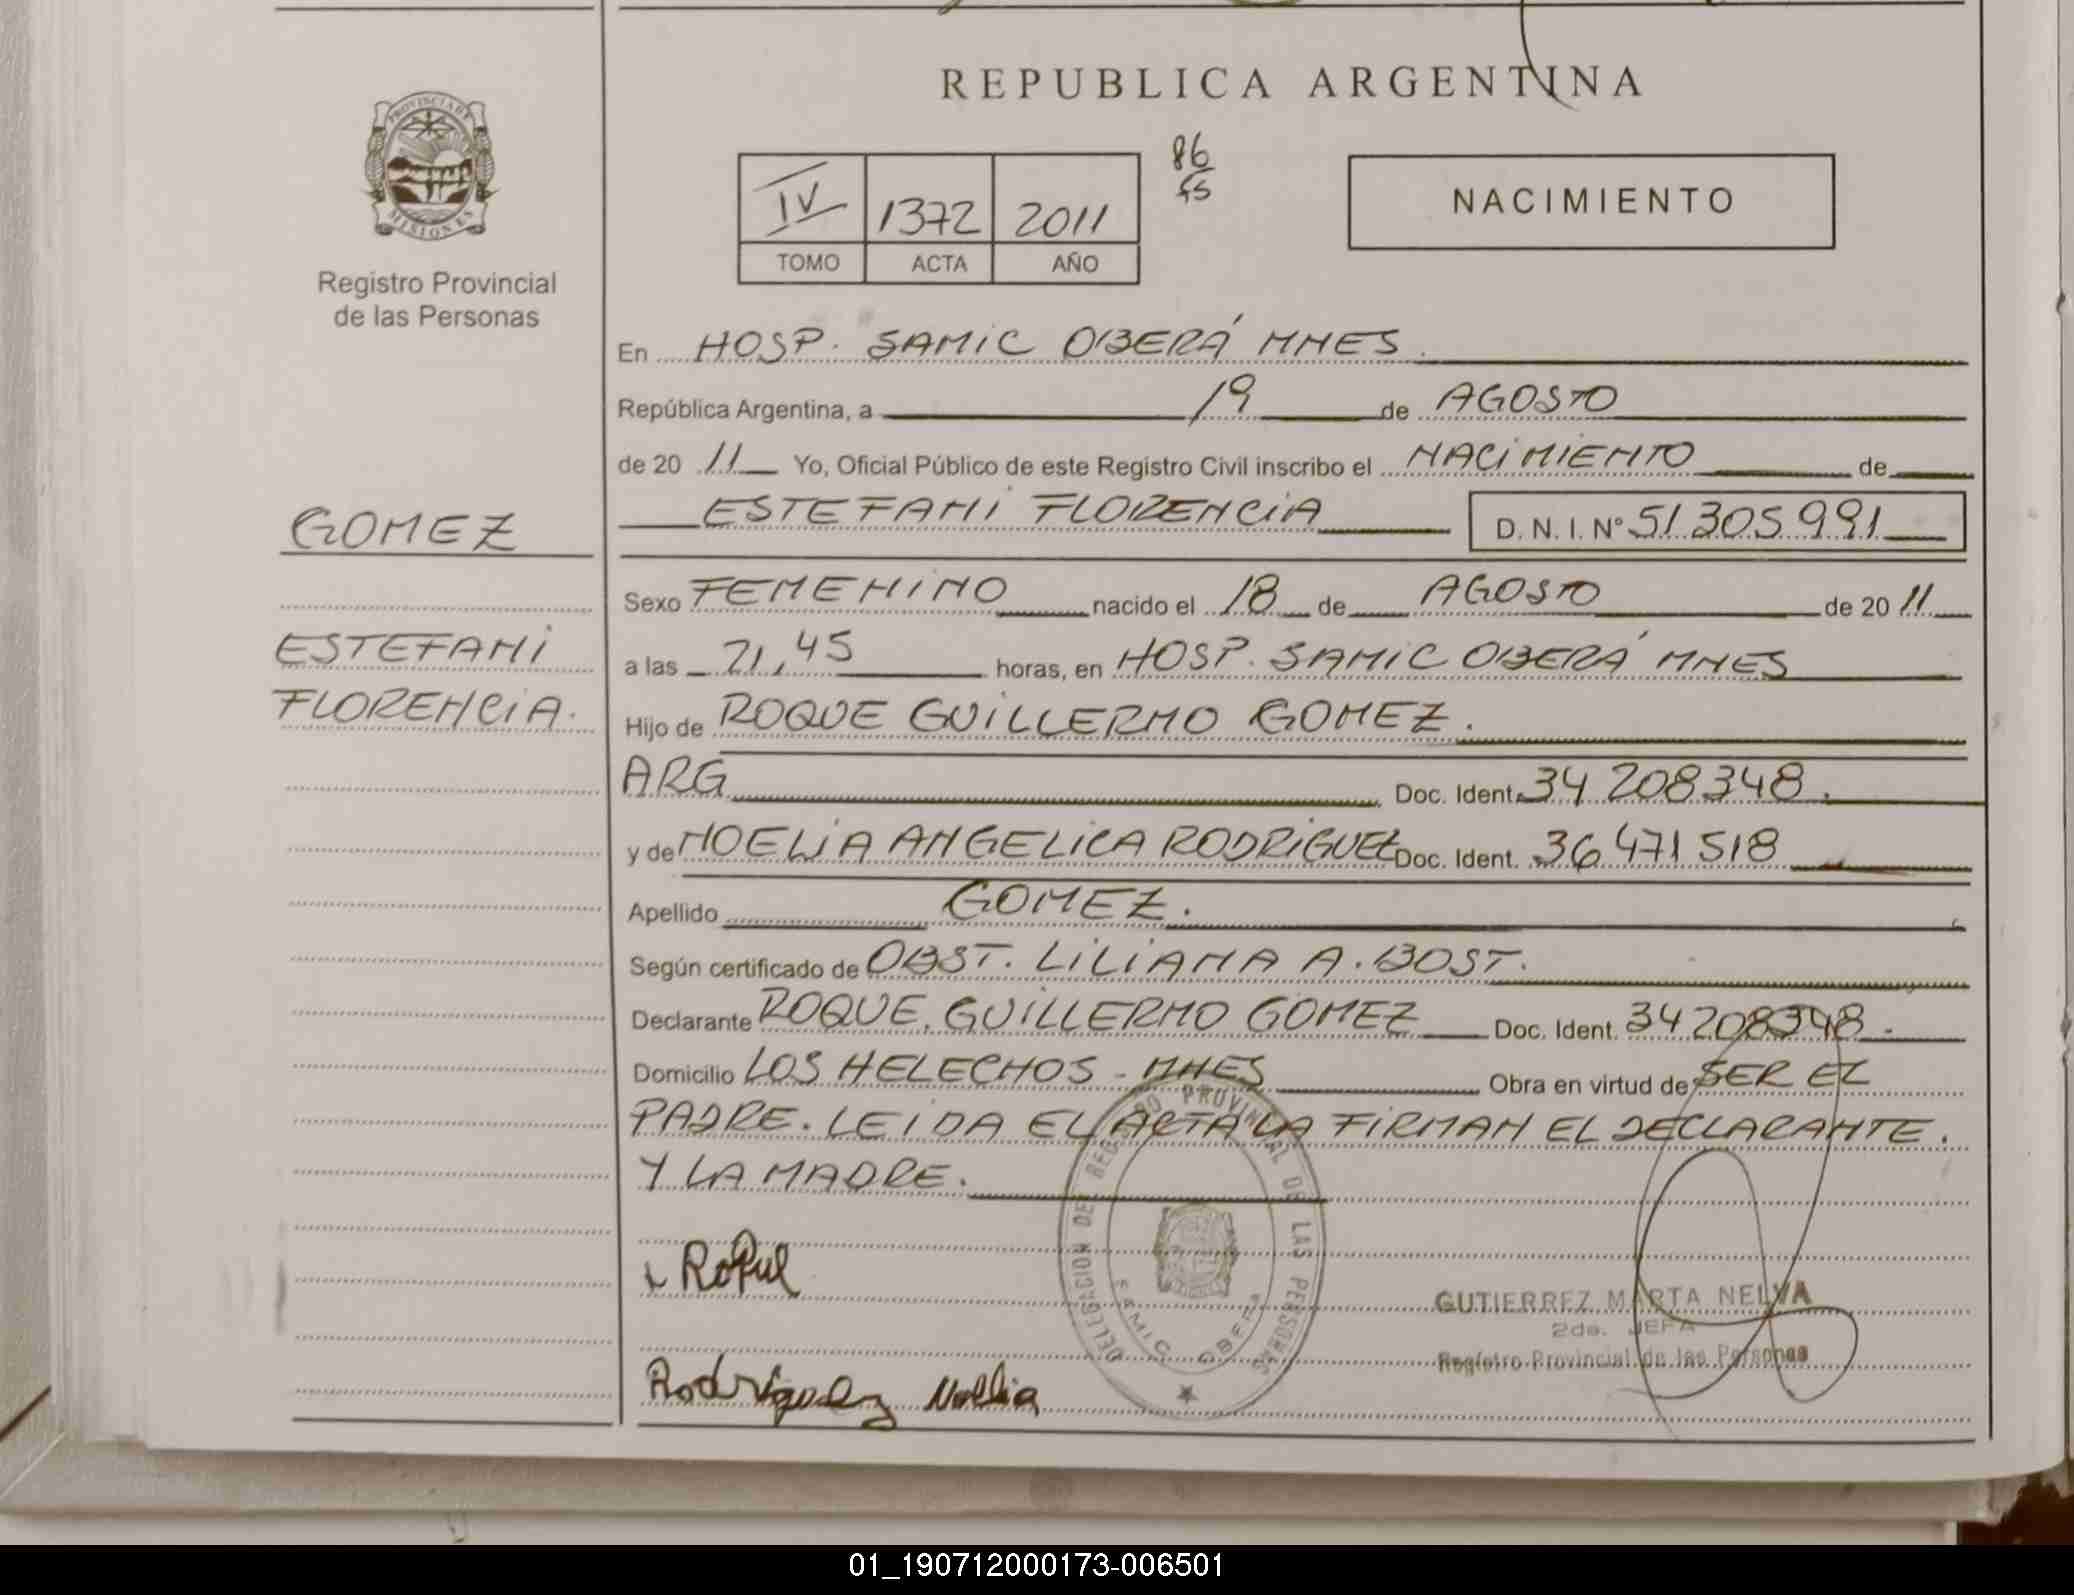 REPUBLICA ARGENTINA
PROVINCIA DE
MISIONES
Registro Provincial
de las Personas
IV 1372 2011
TOMO ACTA AÑO
86
NACIMIENTO
En HOSP. SAMIC OBERÁ MNES.
República Argentina, a 19 de AGOSTO
de 20 11 Yo, Oficial Público de este Registro Civil inscribo el NACIMIENTO de
GOMEZ
ESTEFANI FLORENCIA D. N. I. N° 51.305.991
Sexo FEMENINO nacido el 18 de AGOSTO de 20 11
ESTEFANI
a las 21,45 horas, en HOSP. SAMIC OBERÁ MNES
FLORENCIA.
Hijo de ROQUE GUILLERMO GOMEZ.
ARG Doc. Ident. 34 208348.
y de NOELIA ANGELICA RODRIGUEZ Doc. Ident. 36 471 518
Apellido GOMEZ.
Según certificado de OBST. LILIANA A. BOST.
Declarante ROQUE. GUILLERMO GOMEZ Doc. Ident. 34 208348.
Domicilio LOS HELECHOS - MNES Obra en virtud de SER EL
PADRE. LEIDA EL ACTA LA FIRMAN EL DECLARANTE.
Y LA MADRE.
DELEGACION DEL REGISTRO PROVINCIAL DE LAS PERSONAS
SAMIC OBERA
GUTIERREZ MARTA NELVA
2da. JEFA
Registro Provincial de las Personas
Rodriguez Noelia
01_190712000173-006501